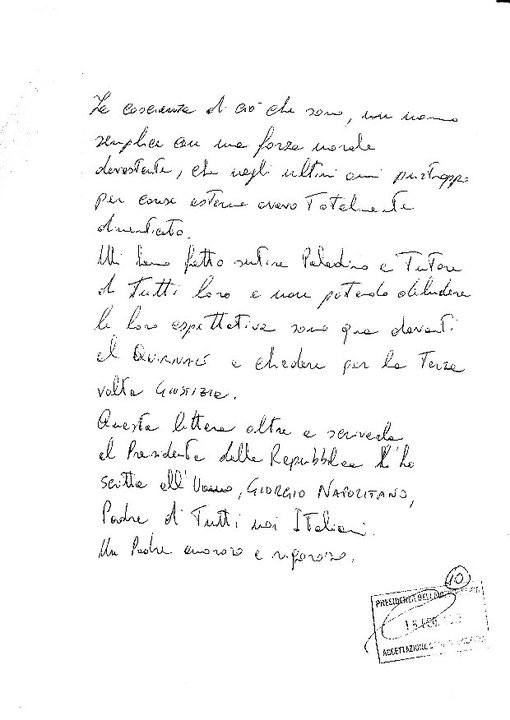 La coscienza di ciò che sono, un uomo
semplice con una forza morale
devastante, che negli ultimi anni purtroppo
per cause esterne avevo Totalmente
dimenticato.
Mi hanno fatto sentire Paladino e Tutore
di Tutti loro e non potendo deludere
le loro aspettative sono qua davanti
al QUIRINALE a chiedere per la Terza
volta GIUSTIZIA.
Questa lettera oltre a scriverla
al Presidente della Repubblica l'ho
scritta all'Uomo, GIORGIO NAPOLITANO,
Padre di Tutti noi Italiani.
Un Padre amoroso e rigoroso.
10
PRESIDENZA DELLA
ACCETTAZIONE